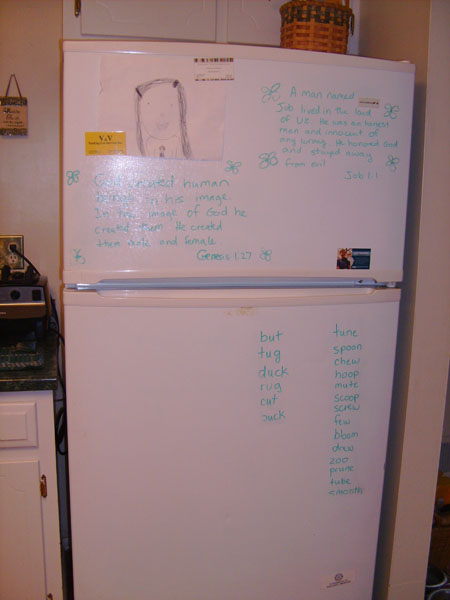 V&V
A man named
Job lived in the land
of Uz. He was an honest
man and innocent of
any wrong. He honored God
and stayed away
from evil
Job 1:1
God created human
beings in his image.
In the image of God he
created them. He created
them male and female.
Genesis 1:27
but
tug
duck
rug
cut
suck
tune
spoon
chew
hoop
mute
scoop
screw
few
bloom
drew
zoo
prune
tube
smooth